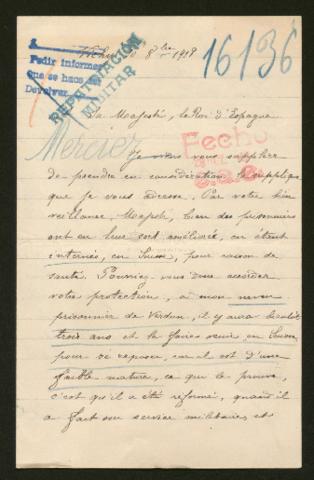 Vichy 8bre 1918
16136
Pedir informes
Que se haga
Devolver
REPATRIACIÓN
MILITAR
Sa Majesté, le Roi d'Espagne
Fecho
Mercier
Je viens vous supplier
de prendre en considération la supplique
que je vous adresse. Par votre bien
veillance, Majesté, bien des prisonniers
ont eu leur sort améliorée, en étant
internés, en Suisse, pour raison de
santé. Pourriez vous donc accorder
votre protection, a mon neveu
prisonnier de Verdun, il y aura bientôt
trois ans et le faire venir en Suisse
pour se reposer, car il est d'une
faible nature, ce que le prouve,
c'est qu'il a été réformé, quand il
a fait son service militaire, et